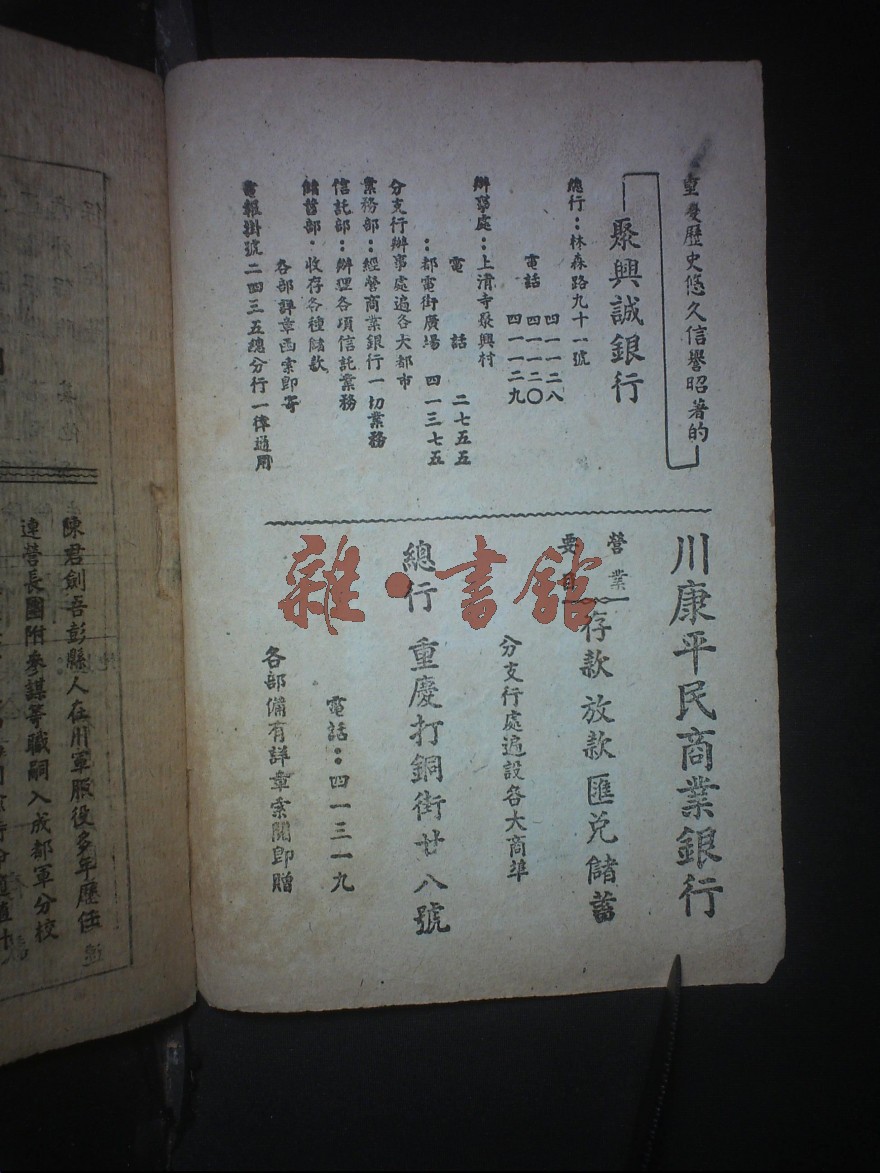 重慶歷史悠久信譽昭著的
聚興誠銀行
總行：林森路九十一號
電話 四一一二八
四一一二〇
四一一二九
辦事處：上清寺聚興村
電話 二七五五
：都電街廣場 四一三七五
分支行辦事處遍各大都市
業務部：經營商業銀行一切業務
信託部：辦理各項信託業務
儲蓄部：收存各種儲款
各部詳章函索即寄
電報掛號二四三五總分行一律通用
川康平民商業銀行
營業
要目
存款 放款 匯兌 儲蓄
分支行處遍設各大商埠
總行 重慶打銅街廿八號
電話：四一三一九
各部備有詳章索閱即贈
雜·書館
陳君劍吾彭縣人在川軍服役多年歷任
連營長團附參謀等職嗣入成都軍分校